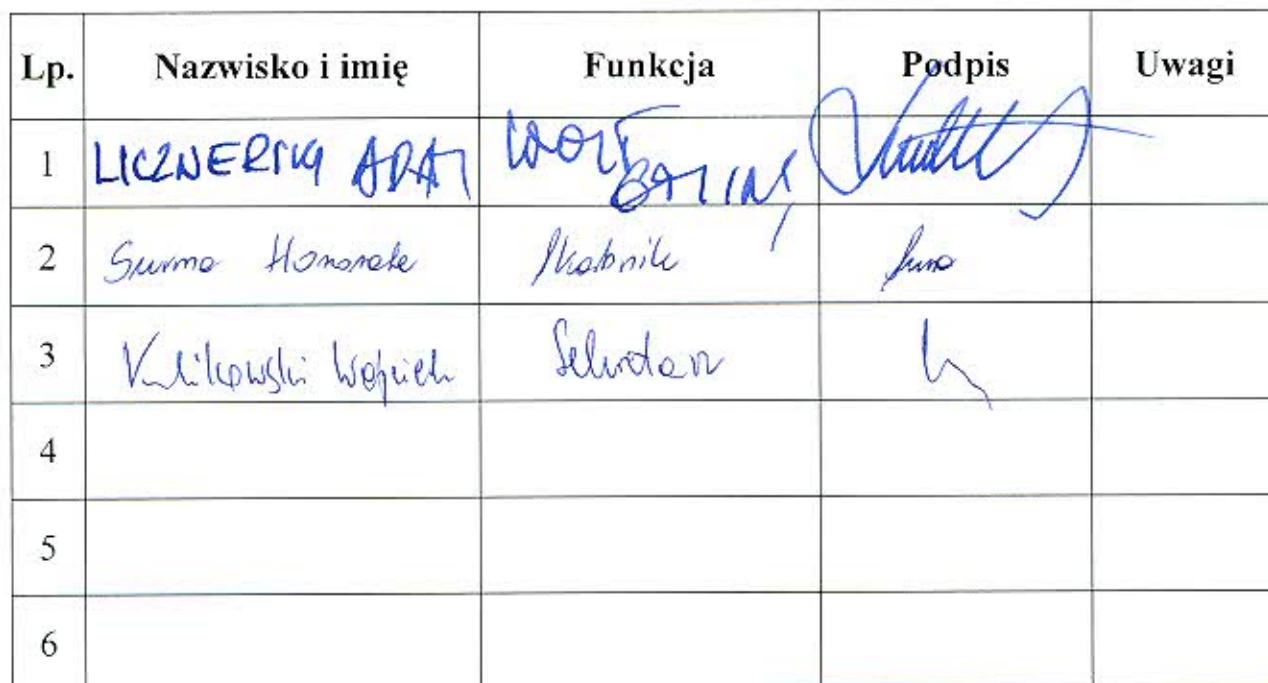 Lp. Nazwisko i imię Funkcja Podpis Uwagi
1 LICZNERSKI ADAM WÓJT GMINY
2 Surma Honorata Skarbnik
3 Kulikowski Wojciech Sekretarz
4
5
6